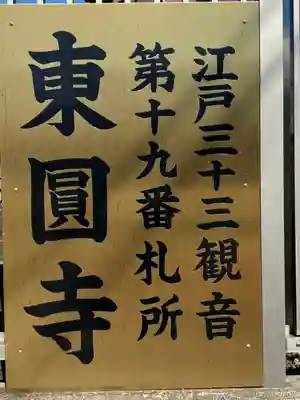 江戸三十三観音
第十九番札所
東圓寺